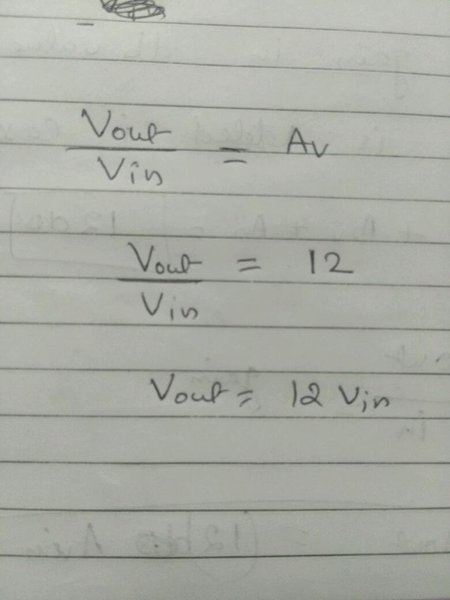 Vout
Vin = Av
Vout
Vin = 12
Vout = 12 Vin